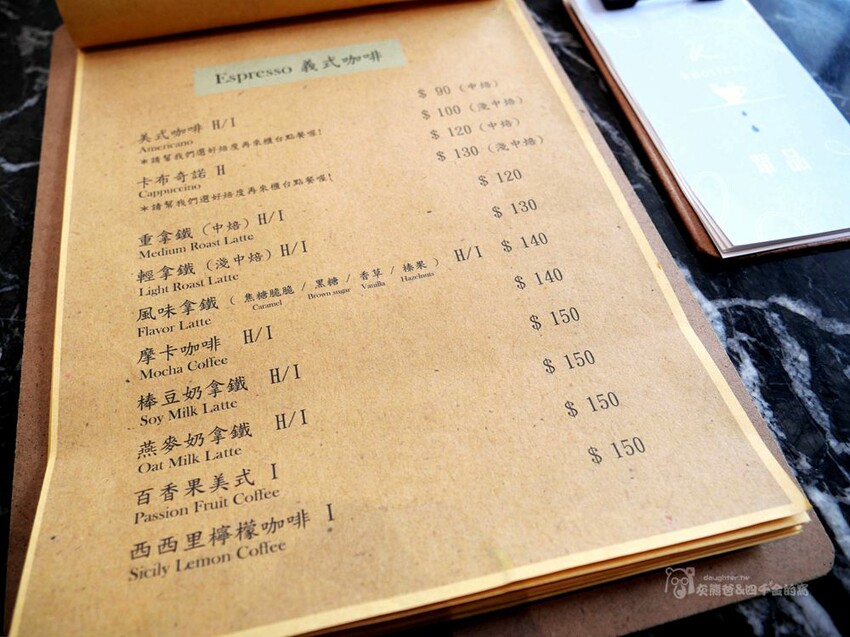 Espresso 義式咖啡
美式咖啡 H/I $ 90 (中焙)
Americano $ 100 (淺中焙)
*請幫我們選好焙度再來櫃台點餐喔!
卡布奇諾 H $ 120 (中焙)
Cappuccino $ 130 (淺中焙)
*請幫我們選好焙度再來櫃台點餐喔!
重拿鐵 (中焙) H/I $ 120
Medium Roast Latte
輕拿鐵 (淺中焙) H/I $ 130
Light Roast Latte
風味拿鐵 ( 焦糖脆脆 / 黑糖 / 香草 / 榛果 ) H/I $ 140
Flavor Latte Caramel Brown sugar Vanilla Hazelnuts
摩卡咖啡 H/I $ 140
Mocha Coffee
棒豆奶拿鐵 H/I $ 150
Soy Milk Latte
燕麥奶拿鐵 H/I $ 150
Oat Milk Latte
百香果美式 I $ 150
Passion Fruit Coffee
西西里檸檬咖啡 I $ 150
Sicily Lemon Coffee
daughter.tw
灰熊爸&四千金的窩